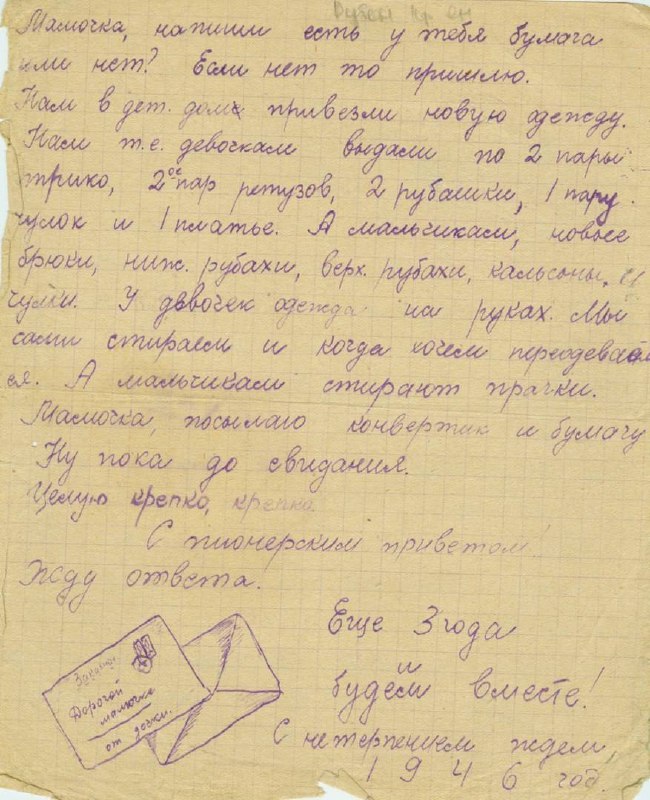 Мамочка, напиши есть у тебя бумага
или нет? Если нет то пришлю.
Нам в дет. дом привезли новую одежду.
Нам т.е. девочкам выдали по 2 пары
трико, 2ое пар ретузов, 2 рубашки, 1 пару
чулок и 1 платье. А мальчикам, новые
брюки, ниж. рубахи, верх. рубахи, кальсоны, и
чулки. У девочек одежда на руках. Мы
сами стираем и когда хочем переодеваем
ся. А мальчикам стирают прачки.
Мамочка, посылаю конвертик и бумагу
Ну пока до свидания.
Целую крепко, крепко
С пионерским приветом!
Жду ответа.
Еще 3 года
и
будем вместе!
С нетерпением ждем
1946 год.
Дорогой
мамочке
от дочки.